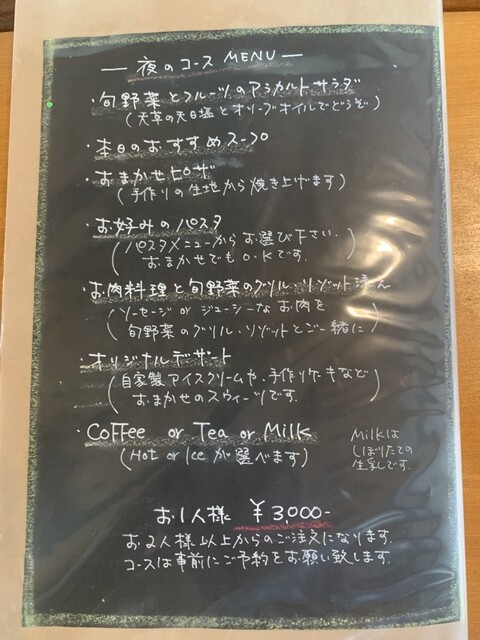 ― 夜のコース MENU ―
・旬野菜とフルーツのアラカルトサラダ
(天草の天日塩とオリーブオイルでどうぞ)
・本日のおすすめスープ
・おまかせピザ
(手作りの生地から焼き上げます)
・お好みのパスタ
(パスタメニューからお選び下さい.
おまかせでもO.Kです.)
・お肉料理と旬野菜のグリル・リゾット添え
(ソーセージ or ジューシーなお肉を
旬野菜のグリル・リゾットとご一緒に)
・オリジナルデザート
(自家製アイスクリームや、手作りケーキなど
おまかせのスウィーツです.)
・Coffee or Tea or Milk
(Hot or Ice が選べます)
Milkは
しぼりたての
生乳です.
お1人様 ¥3000-
お2人様以上からのご注文になります.
コースは事前にご予約をお願い致します.